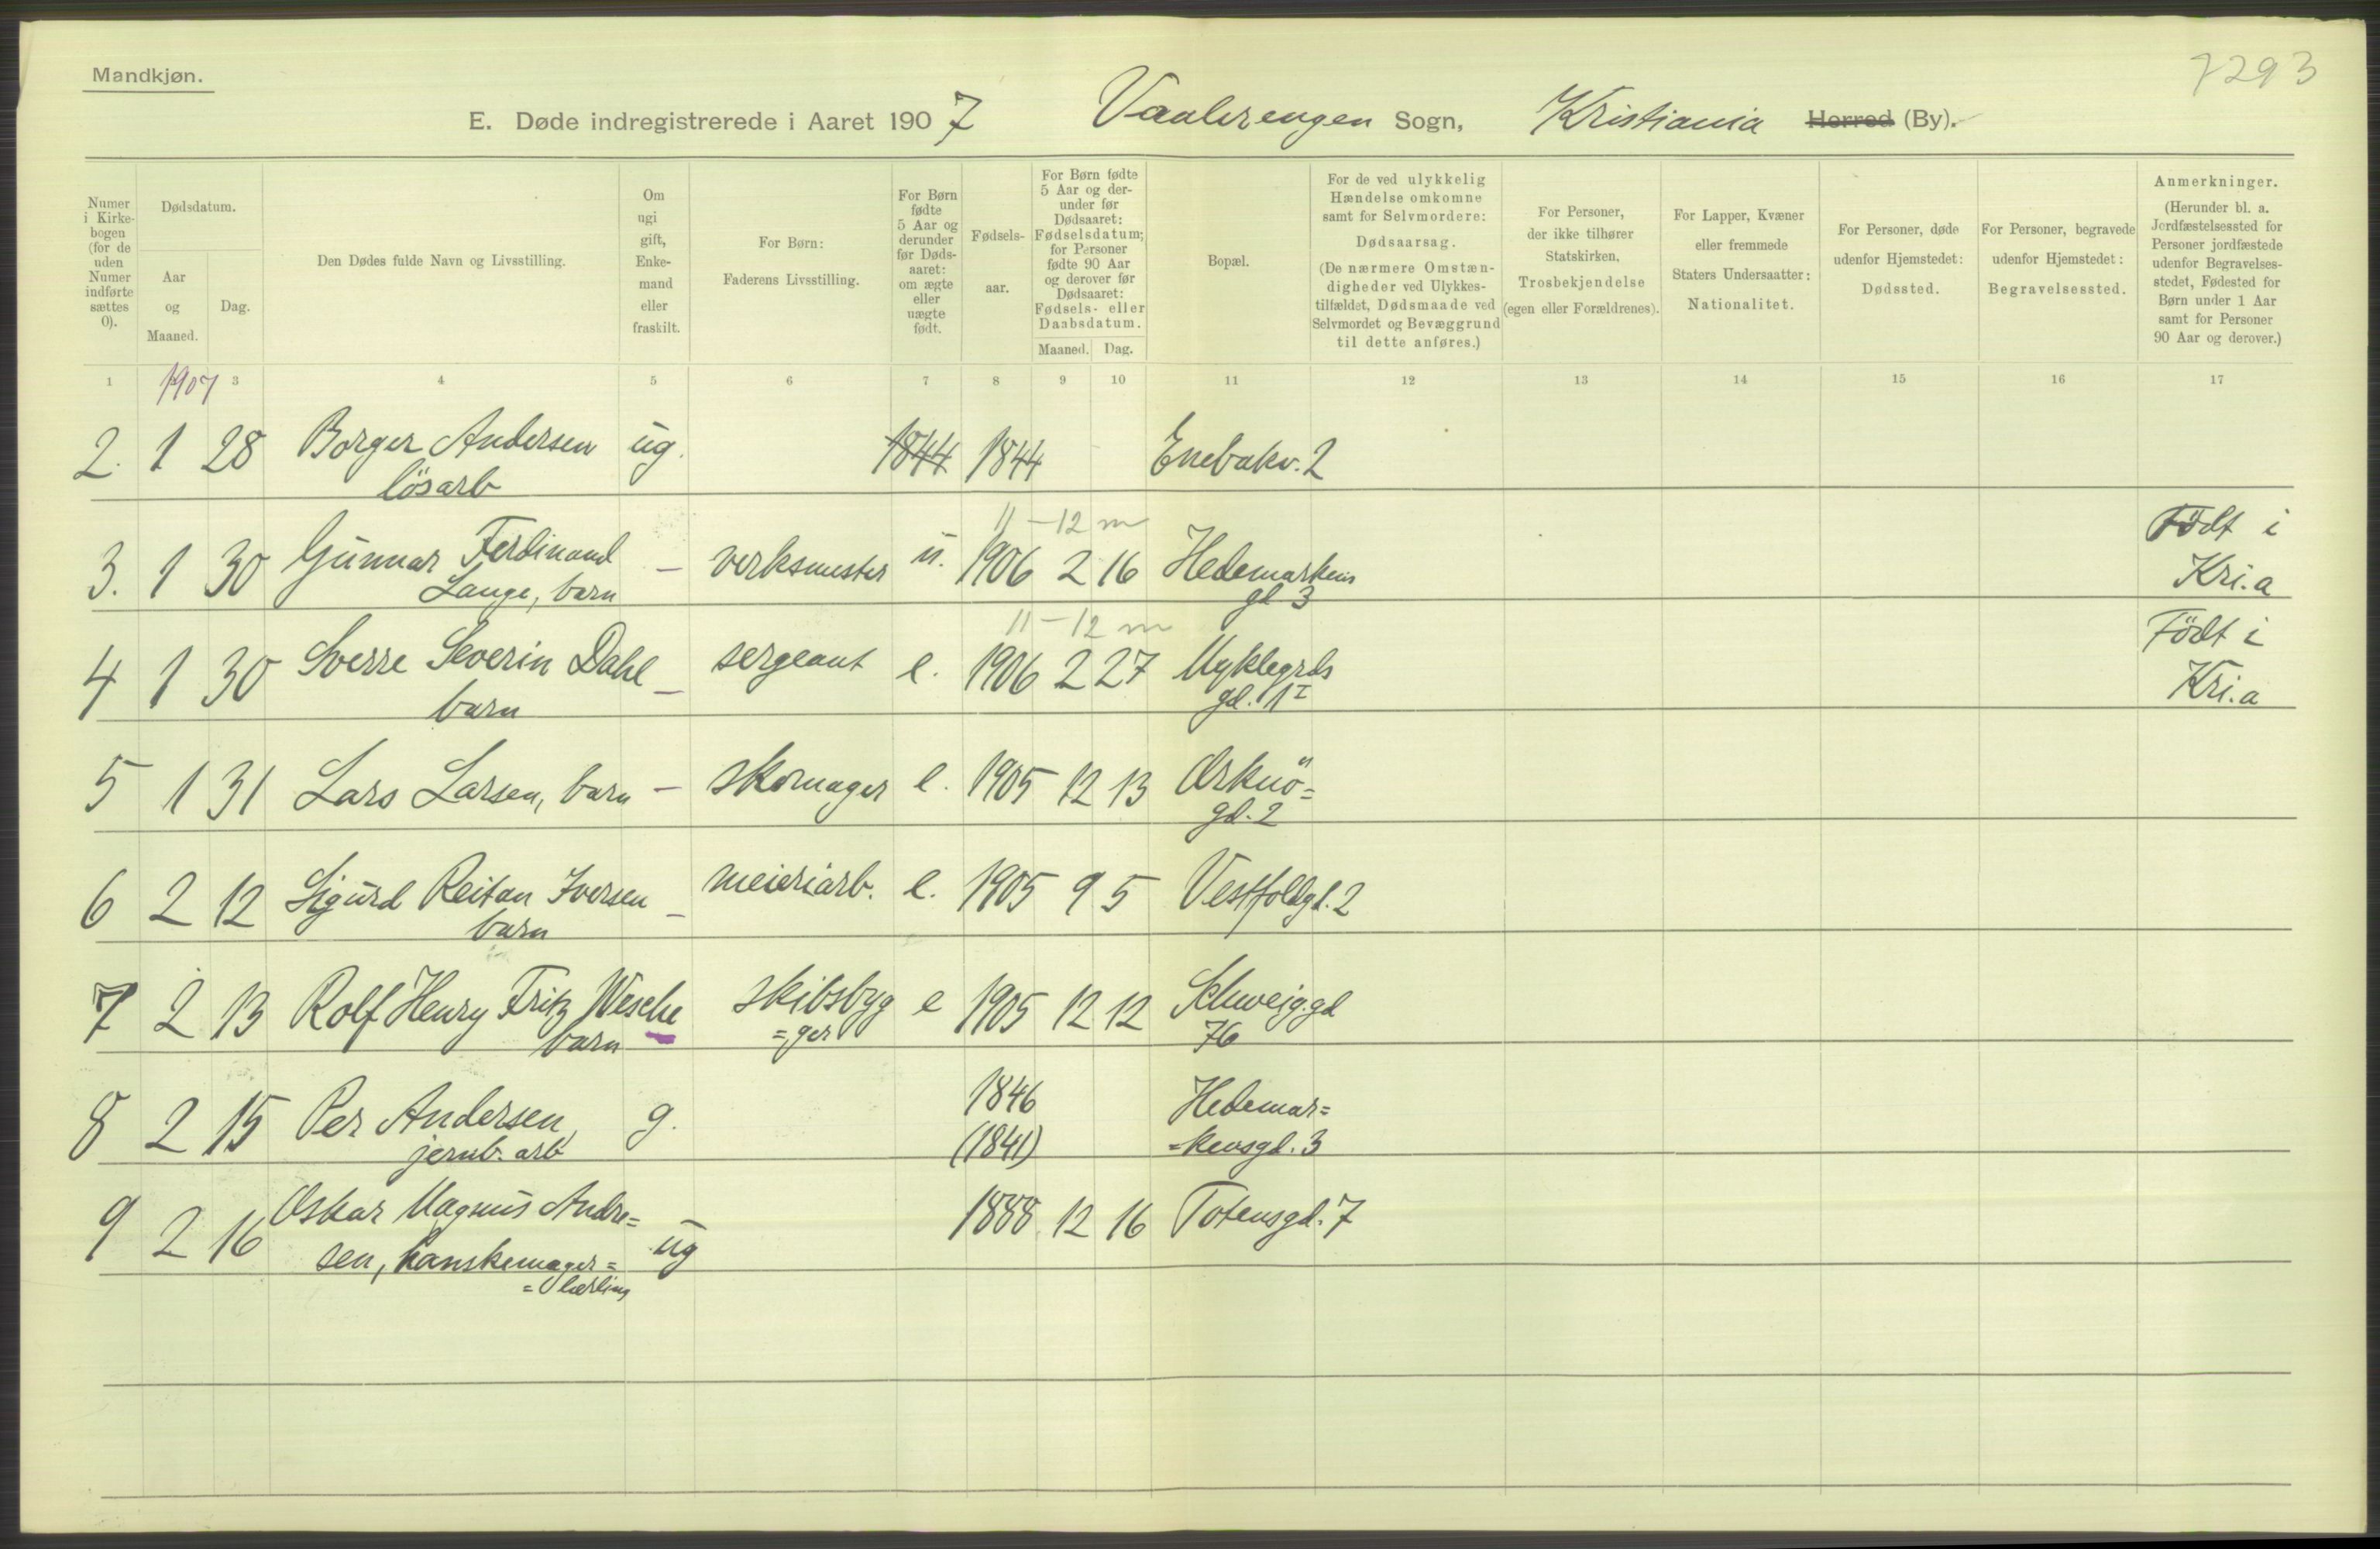 7293
Mandkjøn.
E. Døde indregistrerede i Aaret 1907 Vaalerengen Sogn, Kristiania Herred (By).
Numer i Kirkebogen (for de uden Numer indførte sættes 0).
Dødsdatum.
Aar og Maaned.
Dag.
Den Dødes fulde Navn og Livsstilling.
Om ugi gift, Enkemand eller fraskilt.
For Børn: Faderens Livsstilling.
For Børn fødte 5 Aar og derunder før Dødsaaret: om ægte eller uægte født.
Fødselsaar.
For Børn fødte 5 Aar og derunder før Dødsaaret: Fødselsdatum; for Personer fødte 90 Aar og derover før Dødsaaret: Fødsels- eller Daabsdatum.
Maaned. Dag.
Bopæl.
For de ved ulykkelig Hændelse omkomne samt for Selvmordere: Dødsaarsag. (De nærmere Omstændigheder ved Ulykkestilfældet, Dødsmaade ved Selvmordet og Bevæggrund til dette anføres.)
For Personer, der ikke tilhører Statskirken, Trosbekjendelse (egen eller Forældrenes).
For Lapper, Kvæner eller fremmede Staters Undersaatter: Nationalitet.
For Personer, døde udenfor Hjemstedet: Dødssted.
For Personer, begravede udenfor Hjemstedet: Begravelsessted.
Anmerkninger. (Herunder bl. a. Jordfæstelsessted for Personer jordfæstede udenfor Begravelsesstedet, Fødested for Børn under 1 Aar samt for Personer 90 Aar og derover.)
1 3 4 5 6 7 8 9 10 11 12 13 14 15 16 17
1907
2. 1 28 Borger Andersen ug. 1844 1844 Enebakv. 2
lösarb
11 – 12 m Födt i
3. 1 30 Gunnar Ferdinand – verksmester u. 1906 2 16 Hedemarkens Kri.a
Lange, barn gd 3
11 – 12 m Födt i
4 1 30 Sverre Severin Dahl – sergeant e. 1906 2 27 Myklegrds Kri.a
barn gd. 1 I
5 1 31 Lars Larsen, barn – skomager e. 1905 12 13 Orknö=
gd. 2
6 2 12 Sigurd Reitan Iversen – meieriarb. e. 1905 9 5 Vestfoldgd. 2
barn
7 2 13 Rolf Henry Fritz Wesche skibsbyg e 1905 12 12 Schweig.gd
barn – =ger 76
8 2 15 Per Andersen, g. 1846 Hedemar=
jernb. arb (1841) =kensgd. 3
9 2 16 Oskar Magnus Andre= ug 1888 12 16 Totensgd. 7
sen, hanskemager=
=lærling